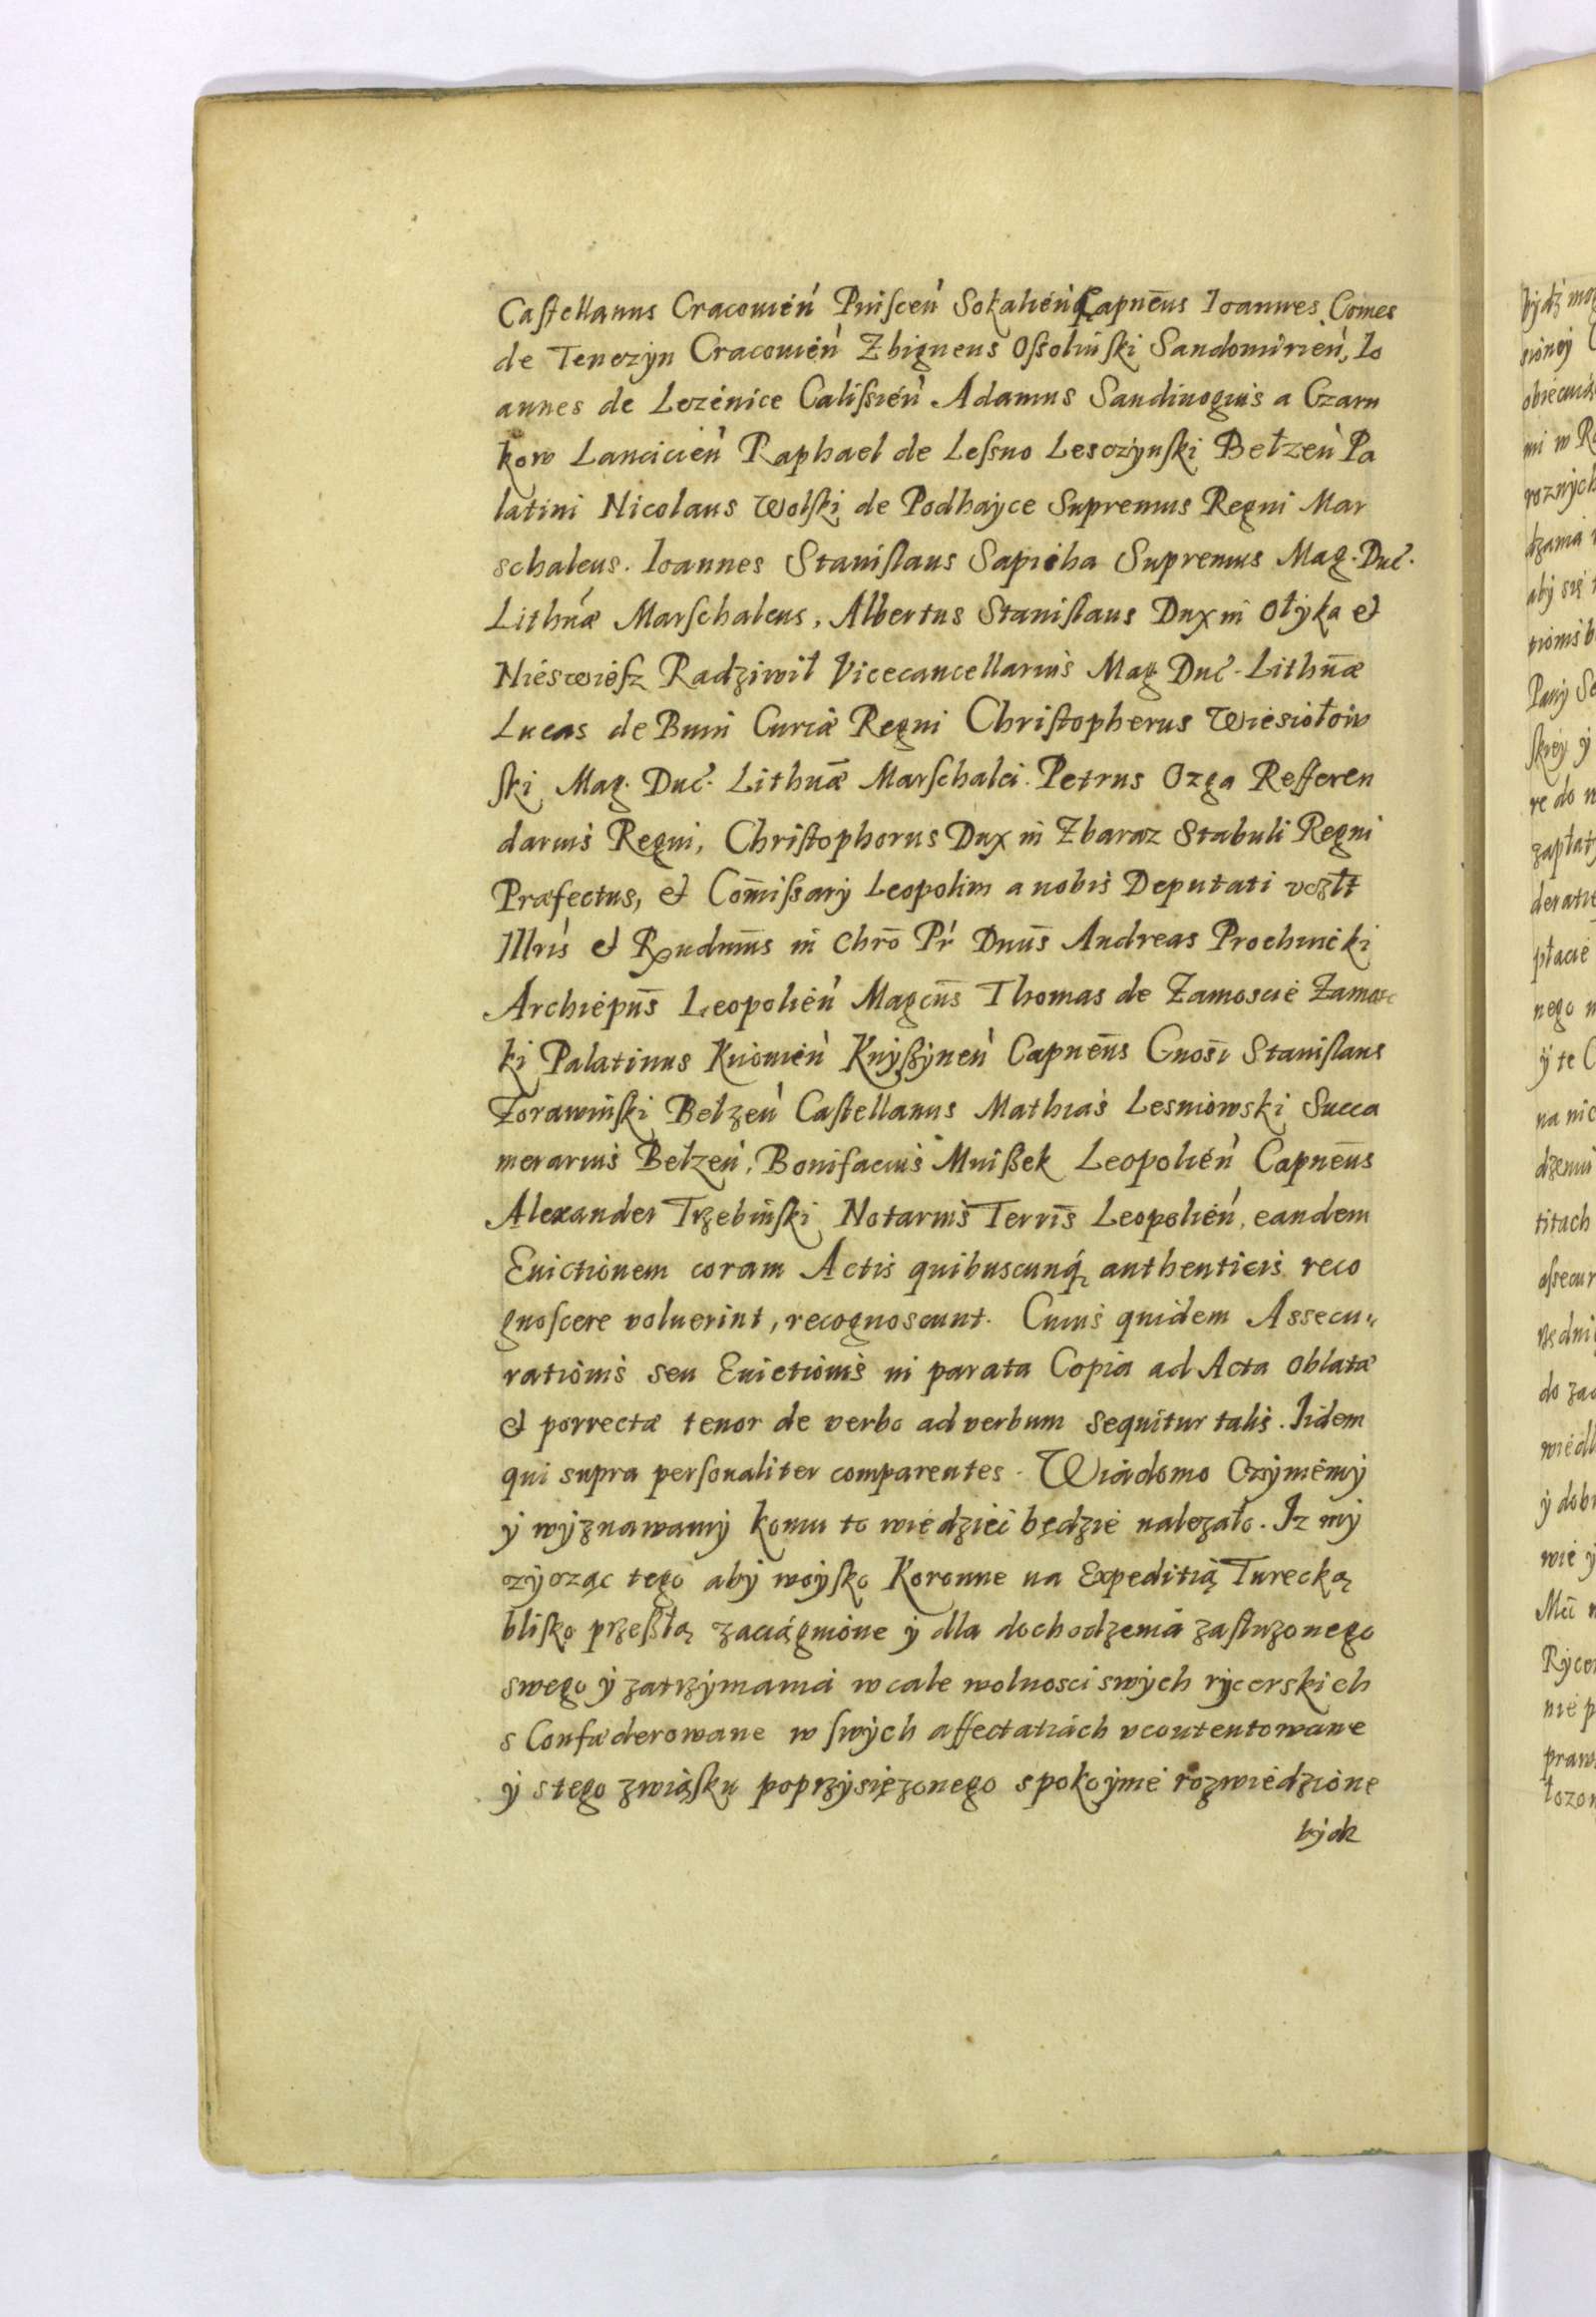 Castellanus Cracovień Pnisceń Sokalień Capnēus Ioannes Comes
de Tenczyn Cracouień Zbigneus Ossoliński Sandomirień, Io
annes de Lezenice Calissień Adamus Sandiuogius a Czarn
kow Lancicień Raphael de Lessno Lesczynski Bełzeń Pa
latini Nicolaus Wolski de Podhayce Supremus Regni Mar
schalcus. Ioannes Stanislaus Sapieha Supremus Mag. Duc.
Lithńæ Marschalcus, Albertus Stanislaus Dux in Ołyka et
Nieswiesz Radziwił Vicecancellarius Mag Duc. Lithūæ
Lucas de Bnin Curiæ Regni Christopherus Wiesiołow
ski Mag. Duc. Lithuæ Marschalci. Petrus Ozga Refferen
darius Regni, Christophorus Dux in Zbaraz Stabuli Regni
Præfectus, et Com̄issarij Leopolim a nobis Deputati vczłt
Illris et Rxndmus in Chrō Pr Dnūs Andreas Prochnicki
Archiepūs Leopolień Magcūs Thomas de Zamoscie Zamos
ki Palatinus Kiiouień Knyszyneń Capnēus Gnosī Stanislaus
Zorawiński Bełzeń Castellanus Mathias Lesniowski Succa
merarius Bełzeń, Bonifacius Mniszek Leopolień Capnēus
Alexander Trzebiński Notarius Terrīs Leopolień, eandem
Euictionem coram Actis quibuscunq́ authenticis reco
gnoscere voluerint, recognoscunt. Cuius quidem Assecu-
rationis seu Euictionis in parata Copia ad Acta oblatæ
et porrectæ tenor de verbo ad verbum sequitur talis. Iidem
qui supra personaliter comparentes. Wiadomo Czyniemy
y wyznawamy komu to wiedzieć będzie nalezało. Iz my
zycząc tego aby woysko Koronne na Expeditią Turecką
blisko przeszłą zaciągnione y dla dochodzenia zasłuzonego
swego y zatrzymania w cale wolnosci swych rycerskich
s Confæderowane w swych affectatiach vcontentowane
y stego związku poprzysięzonego spokoynie rozwiedzione
bydz